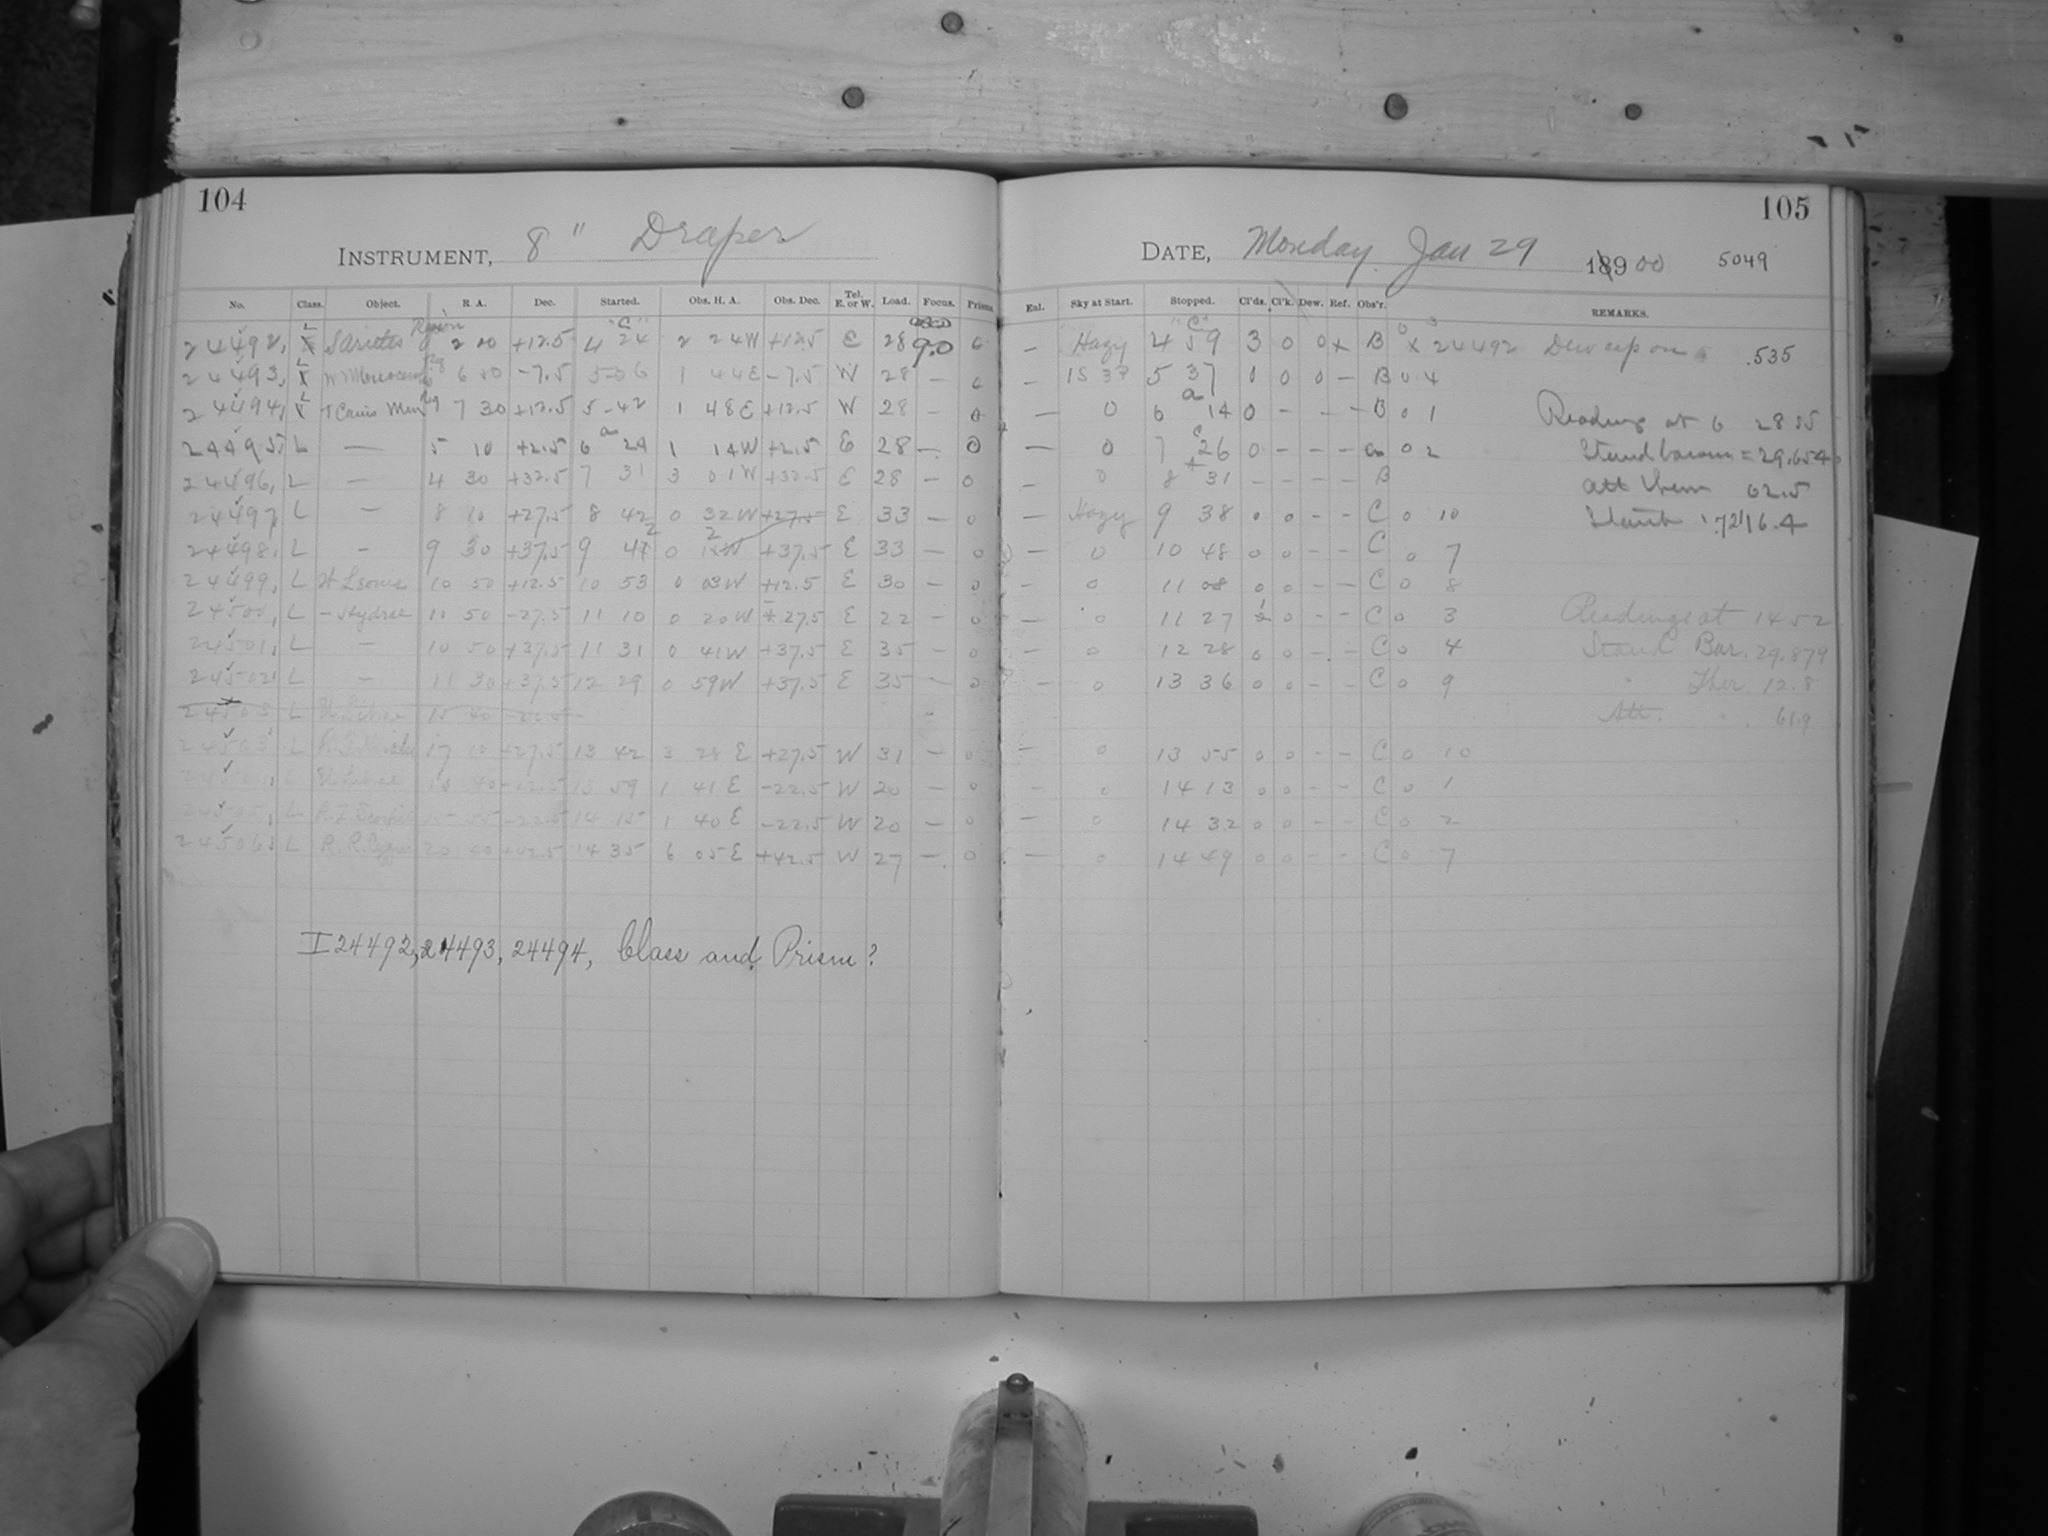 104
INSTRUMENT, 8" Draper
No. Class. Object. R. A. Dec. Started. Obs. H. A. Obs. Dec. Tel. E. or W. Load. Focus. Prisms
24492, L Region 2 20 +12.5 4 24 "C" 2 24W +12.5 E 28 9.0 0
24493, L 6 50 -7.5 5 06 1 44E -7.5 W 28 — 0
24494, L T Canis Min Rg 7 30 +12.5 5 42 1 48E +12.5 W 28 — 0
24495 L — 5 10 +2.5 6 24 a 1 14W +2.5 E 28 — 0
24496, L — 4 30 +32.5 7 31 3 01W +32.5 E 28 — 0
24497, L — 8 10 +27.5 8 42 0 32W +27.5 E 33 — 0
24498, L — 9 30 +37.5 9 42 0 12W +37.5 E 33 — 0
24499, L 10 50 +12.5 10 53 0 03W +12.5 E 30 — 0
24500, L — Hydrae 10 50 -27.5 11 10 0 20W -27.5 E 22 — 0
24501, L — 10 50 +37.5 11 31 0 41W +37.5 E 35 — 0
24502, L — 11 30 +37.5 12 29 0 59W +37.5 E 35 — 0
24503 L Librae 15 40 -22.5
24503 L 17 10 +27.5 13 42 3 28 E +27.5 W 31 — 0
24504, L Librae 15 40 -22.5 13 59 1 41 E -22.5 W 20 — 0
24505, L 15 55 -22.5 14 15 1 40 E -22.5 W 20 — 0
24506, L 20 40 +42.5 14 35 6 05 E +42.5 W 27 — 0
I 24492, 24493, 24494, Class and Prism?
105
DATE, Monday Jan 29 1900 5049
Enl. Sky at Start. Stopped. Cl'ds. Cl'k. Dew. Ref. Obs'r. REMARKS.
— Hazy 4 59 "C" 3 0 0 x B x 24492 Dewcap on .535
— 5 37 1 0 0 — B 0 4
— 0 6 14 a 0 - - - B 0 1 Reading at 6 28
— 0 7 26 c 0 - - - a 0 2 Stand barom = 29.654
— 0 8 31 - - - - B att therm 62.5
— Hazy 9 38 0 0 - - C 0 10
— 0 10 48 0 0 - - C 0 7
— 0 11 08 0 0 - - C 0 8
— 0 11 27 0 - - C 0 3 Readings at 14 52
— 0 12 28 0 0 - - C 0 4 Stand Bar. 29.879
— 0 13 36 0 0 - - C 0 9 " Ther 12.8
Att. " 61.9
— 0 13 55 0 0 - - C 0 10
— 0 14 13 0 0 - - C 0 1
— 0 14 32 0 0 - - C 0 2
— 0 14 49 0 0 - - C 0 7